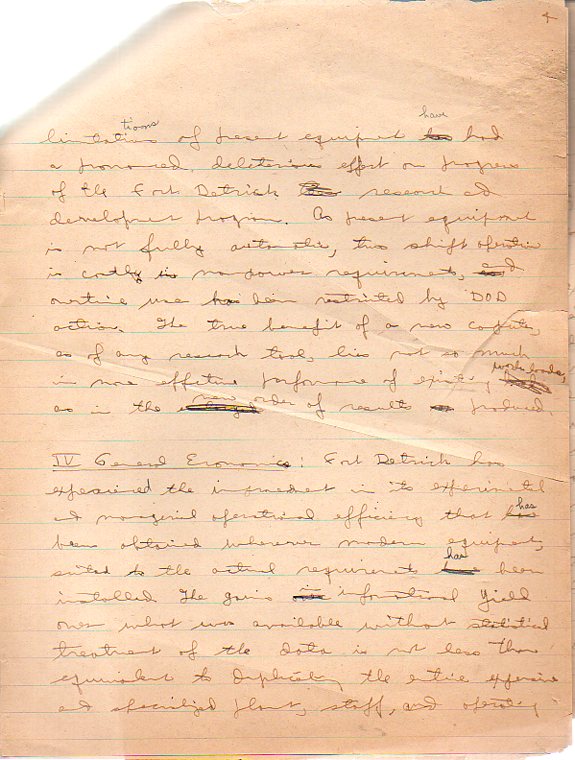 4
tions have
limitations of present equipment had
a pronounced, deleterious effect on progress
of the Fort Detrick research and
development program. As present equipment
is not fully automatic, two shift operation
is costly in manpower requirements, and
overtime use has been restricted by DOD
action. The true benefit of a new computer,
as of any research tool, lies not so much
in more effective performance of existing work loads,
as in the new order of results produced.
IV General Economics: Fort Detrick has
experienced the improvement in its experimental
and managerial operational efficiency that has
been obtained wherever modern equipment,
suited to the actual requirements has been
installed. The gain in informational yield
over what was available without statistical
treatment of the data is not less than
equivalent to duplicating the entire expensive
and specialized plant, staff, and operating